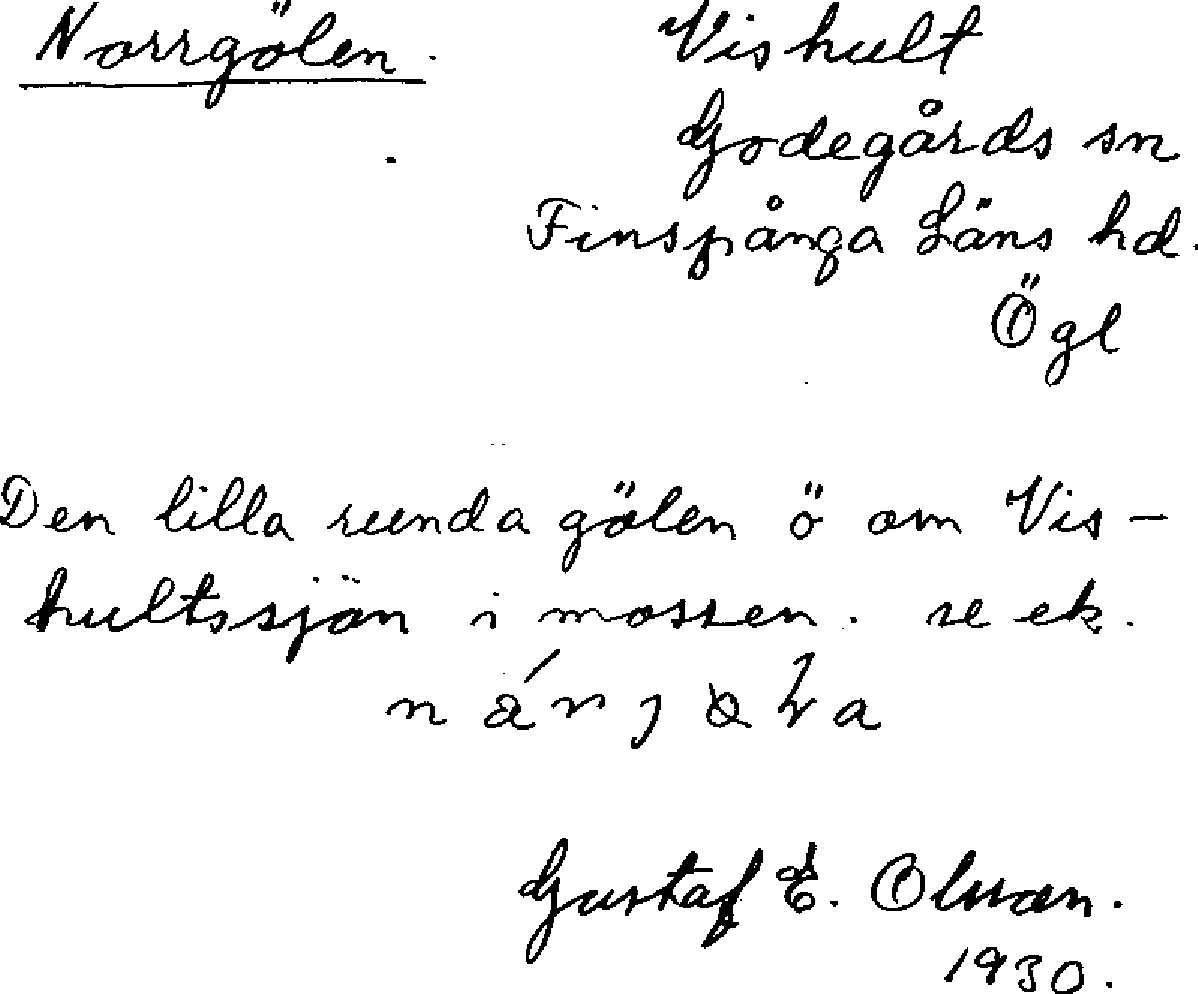 Norrgölen.
Vishult
Godegårds sn
Finspånga Läns hd.
Ögl
Den lilla runda gölen ö om Vis-
hultssjön i mossen. se ek.
Gustaf E. Olsson.
1930.